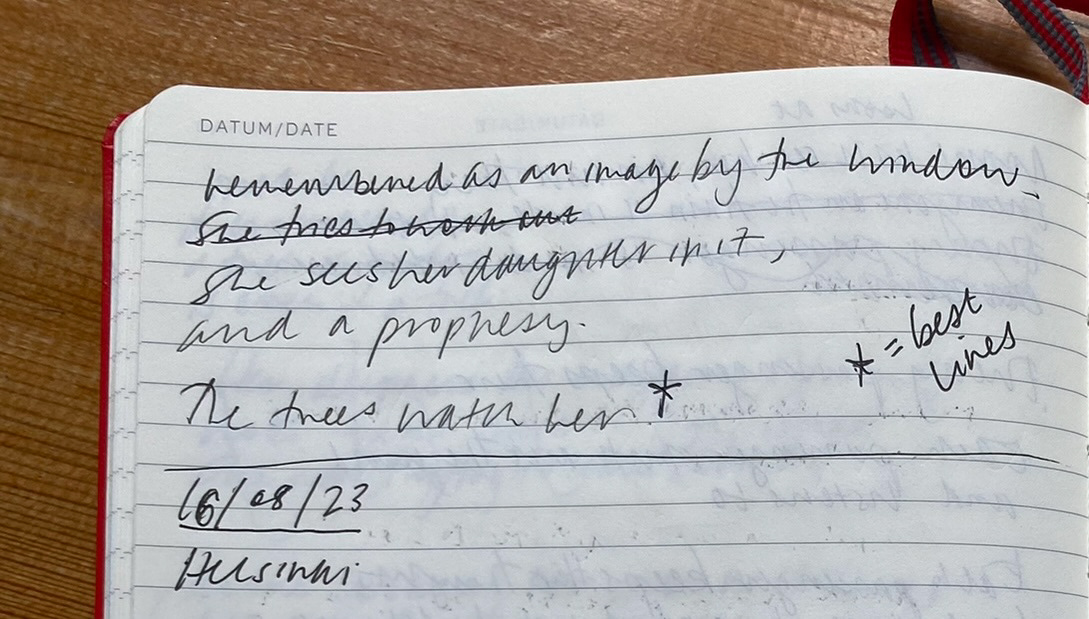 DATUM/DATE
remembered as an image by the window.
She tries to work out
She sees her daughter in it,
and a prophesy.
* = best
lines
The trees watch her *
16/08/23
Helsinki